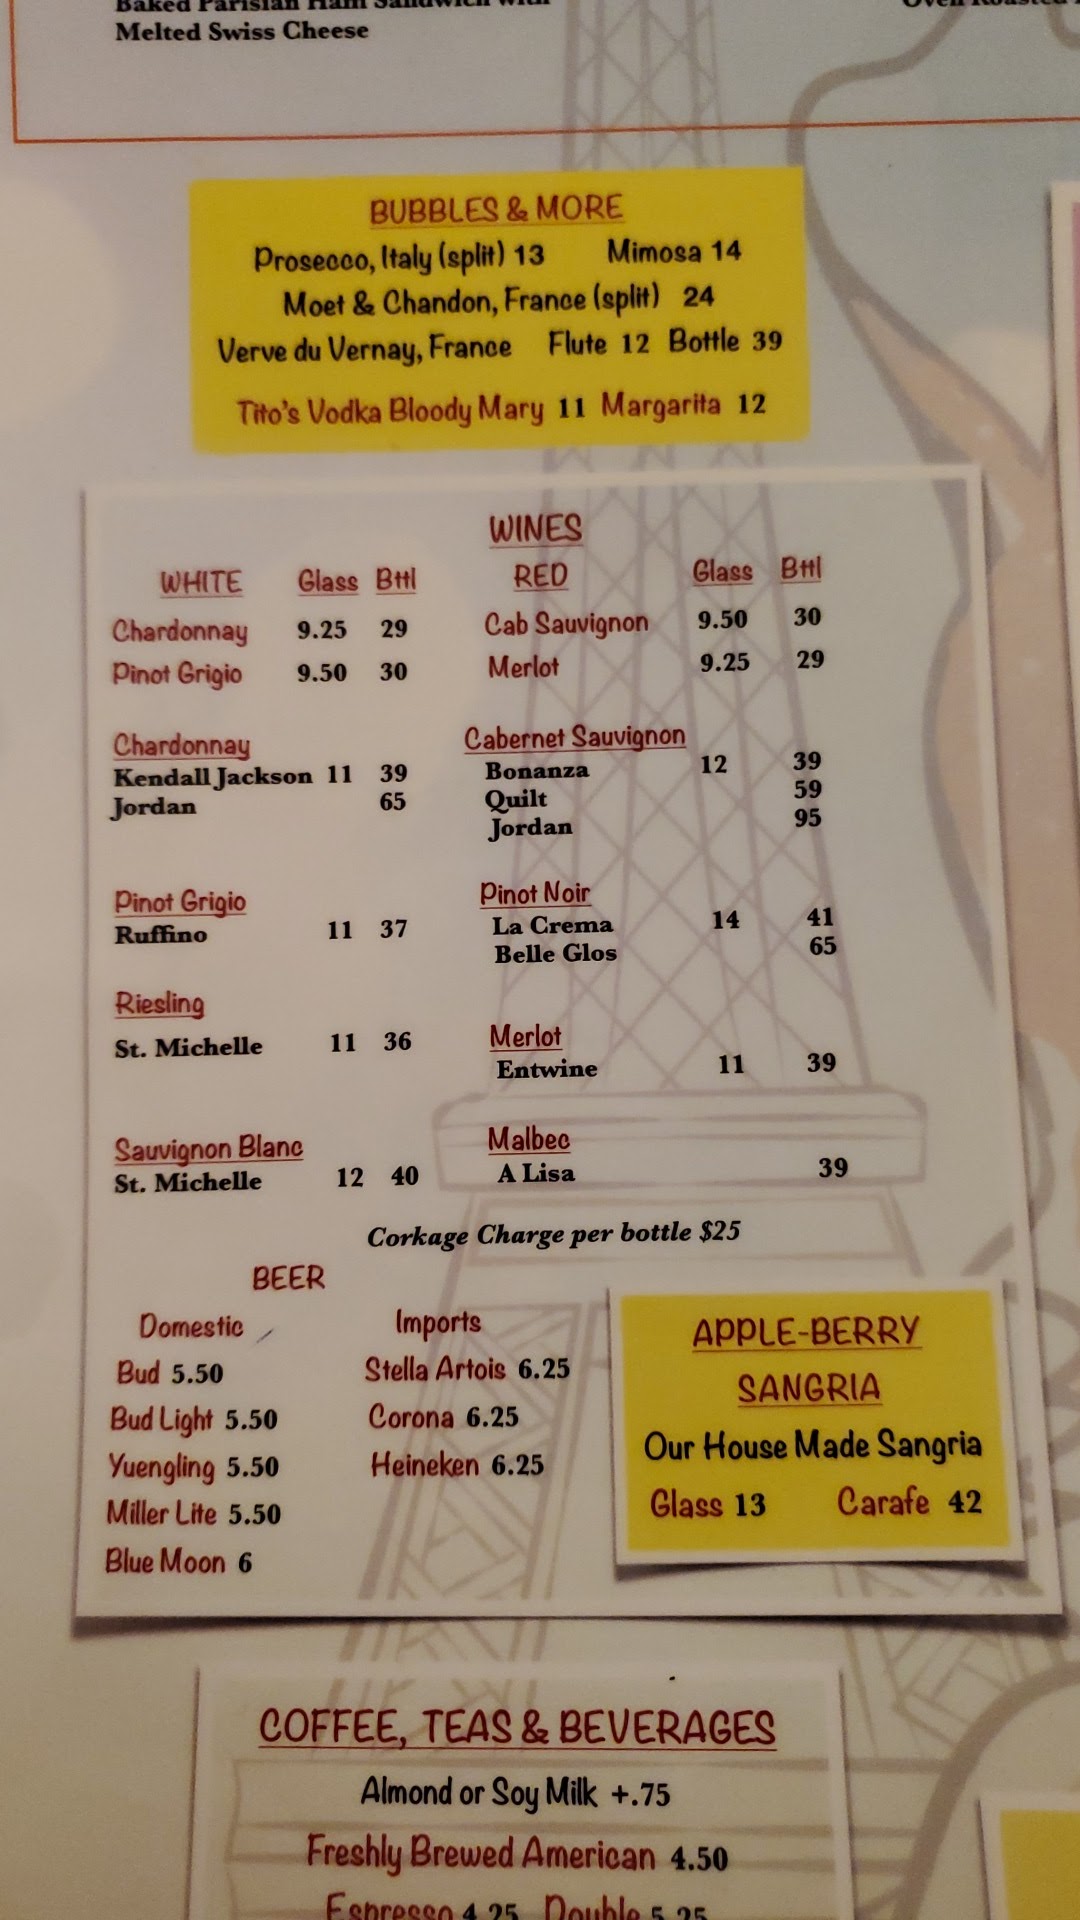 Baked Parisian Ham Sandwich with
Melted Swiss Cheese
Oven Roasted
BUBBLES & MORE
Prosecco, Italy (split) 13 Mimosa 14
Moet & Chandon, France (split) 24
Verve du Vernay, France Flute 12 Bottle 39
Tito's Vodka Bloody Mary 11 Margarita 12
WINES
WHITE Glass Bttl
Chardonnay 9.25 29
Pinot Grigio 9.50 30
Chardonnay
Kendall Jackson 11 39
Jordan 65
Pinot Grigio
Ruffino 11 37
Riesling
St. Michelle 11 36
Sauvignon Blanc
St. Michelle 12 40
RED Glass Bttl
Cab Sauvignon 9.50 30
Merlot 9.25 29
Cabernet Sauvignon
Bonanza 12 39
Quilt 59
Jordan 95
Pinot Noir
La Crema 14 41
Belle Glos 65
Merlot
Entwine 11 39
Malbec
A Lisa 39
Corkage Charge per bottle $25
BEER
Domestic
Bud 5.50
Bud Light 5.50
Yuengling 5.50
Miller Lite 5.50
Blue Moon 6
Imports
Stella Artois 6.25
Corona 6.25
Heineken 6.25
APPLE-BERRY
SANGRIA
Our House Made Sangria
Glass 13 Carafe 42
COFFEE, TEAS & BEVERAGES
Almond or Soy Milk +.75
Freshly Brewed American 4.50
Espresso 4.25 Double 5.25